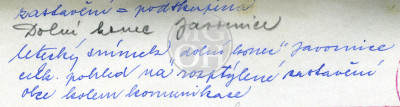 zastavění = podskupina
Dolní konec Javornice
letecký snímek „dolní konec" Javornice
celk. pohled na "rozptýlené zastavění
obce kolem komunikace